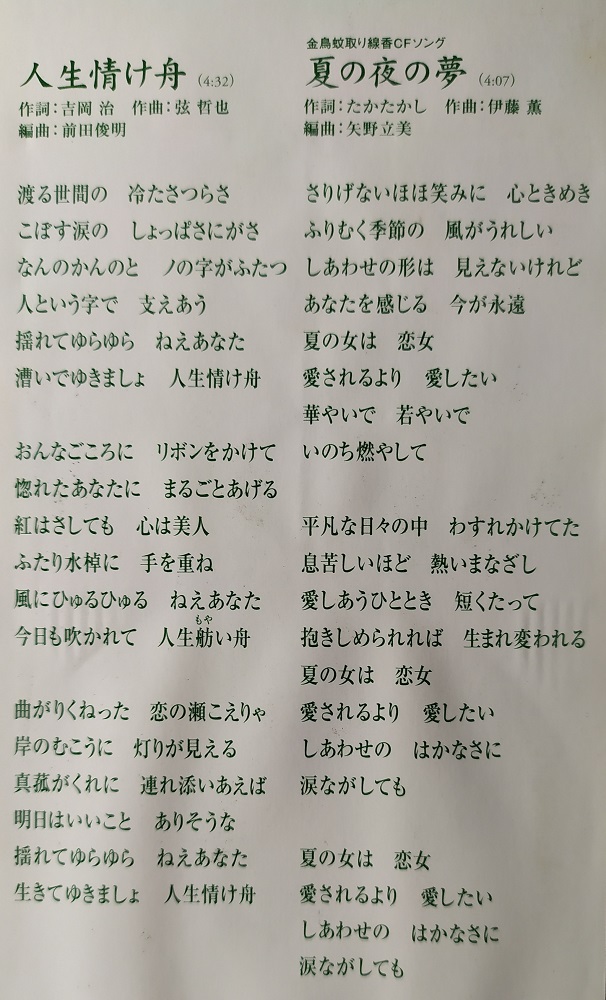 人生情け舟 (4:32)
作詞:吉岡 治 作曲:弦 哲也
編曲:前田俊明
渡る世間の 冷たさつらさ
こぼす涙の しょっぱさにがさ
なんのかんのと ノの字がふたつ
人という字で 支えあう
揺れてゆらゆら ねえあなた
漕いでゆきましょ 人生情け舟
おんなごころに リボンをかけて
惚れたあなたに まるごとあげる
紅はさしても 心は美人
ふたり水棹に 手を重ね
風にひゅるひゅる ねえあなた
もや
今日も吹かれて 人生舫い舟
曲がりくねった 恋の瀬こえりゃ
岸のむこうに 灯りが見える
真菰がくれに 連れ添いあえば
明日はいいこと ありそうな
揺れてゆらゆら ねえあなた
生きてゆきましょ 人生情け舟
金鳥蚊取り線香CFソング
夏の夜の夢 (4:07)
作詞:たかたかし 作曲:伊藤 薫
編曲:矢野立美
さりげないほほ笑みに 心ときめき
ふりむく季節の 風がうれしい
しあわせの形は 見えないけれど
あなたを感じる 今が永遠
夏の女は 恋女
愛されるより 愛したい
華やいで 若やいで
いのち燃やして
平凡な日々の中 わすれかけてた
息苦しいほど 熱いまなざし
愛しあうひととき 短くたって
抱きしめられれば 生まれ変われる
夏の女は 恋女
愛されるより 愛したい
しあわせの はかなさに
涙ながしても
夏の女は 恋女
愛されるより 愛したい
しあわせの はかなさに
涙ながしても